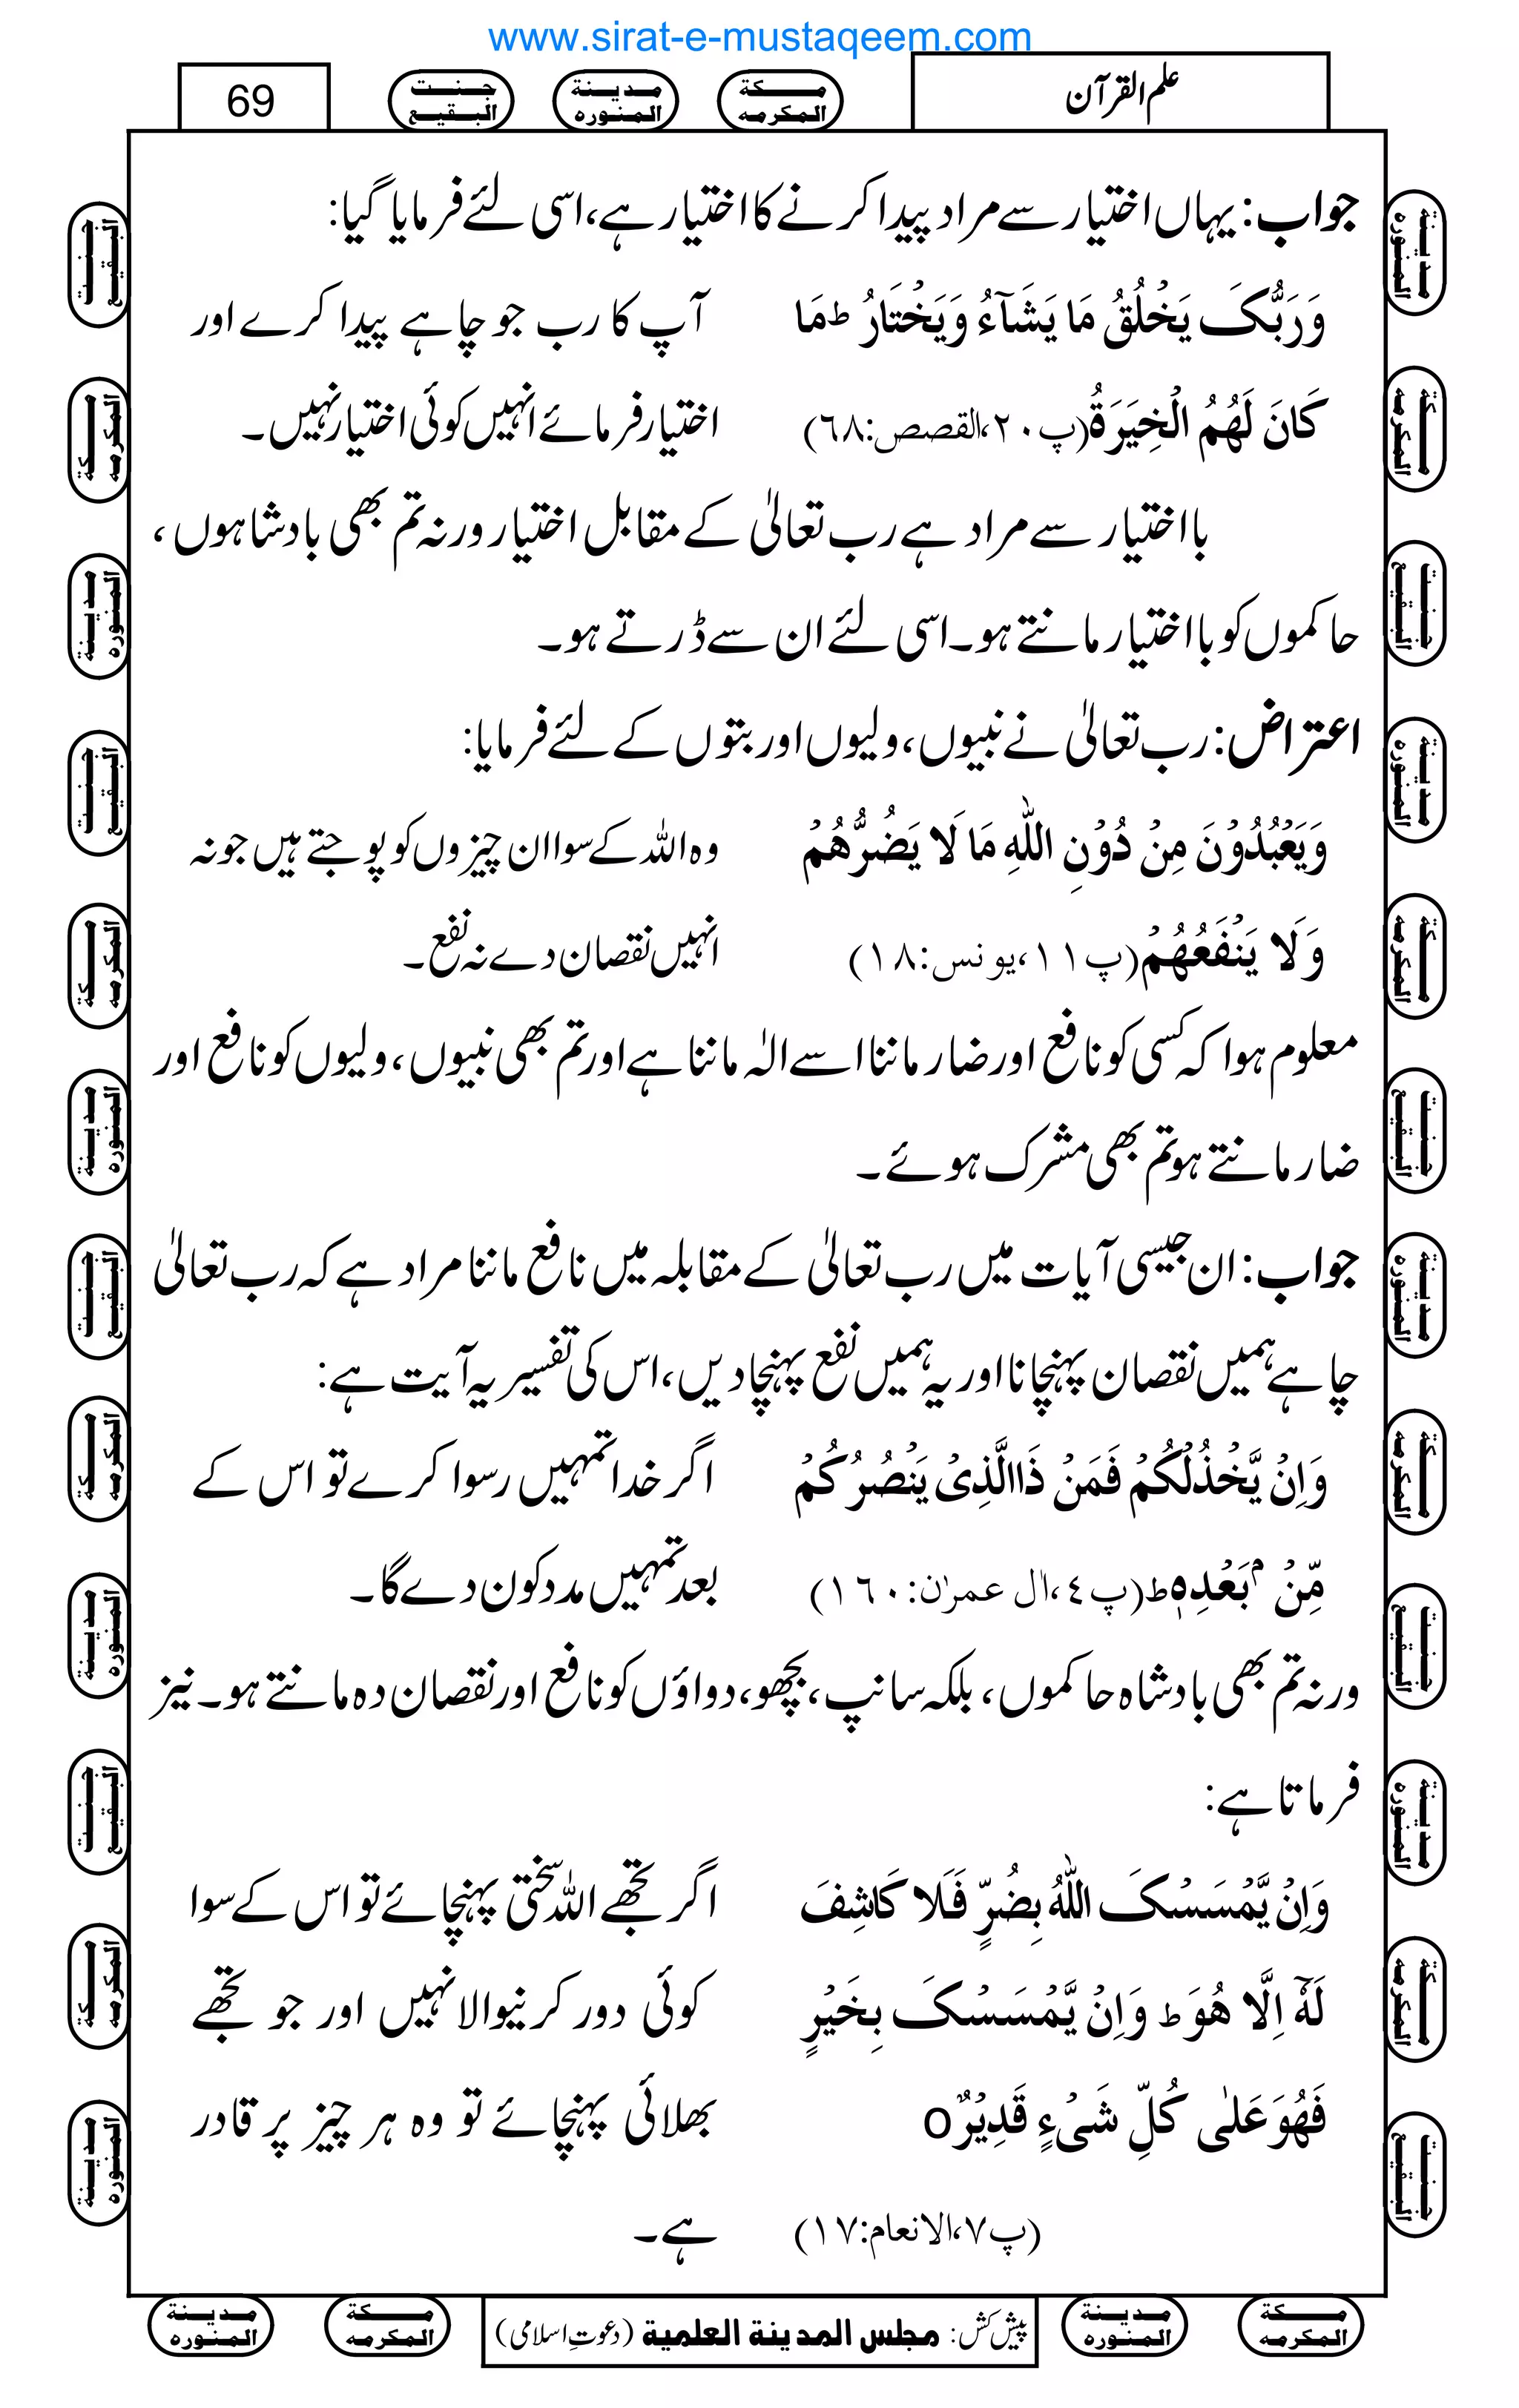 www.sirat-e-mustaqeem.com
علم القرآن
مكة المكرمه
مدينة المنوره
جنت البقيع
69
جواب: یہاں اختیار سے مراد پیدا کرنے کا اختیار ہے، اسی لئے فرمایا گیا:
وَرَبُّکَ یَخْلُقُ مَا یَشَآءُ وَیَخْتَارُ ط مَا آپ کا رب جو چاہے پیدا کرے اور
کَانَ لَہُمُ الْخِیَرَۃُ (پ٢٠، القصص:٦٨) اختیار فرمائے انہیں کوئی اختیار نہیں۔
با اختیار سے مراد ہے رب تعالیٰ کے مقابل اختیار ورنہ تم بھی بادشاہوں،
حاکموں کو با اختیار مانتے ہو۔ اسی لئے ان سے ڈرتے ہو۔
اعتراض: رب تعالیٰ نے نبیوں، ولیوں اور بتوں کے لئے فرمایا:
وَیَعْبُدُوْنَ مِنْ دُوْنِ اللّٰہِ مَا لَا یَضُرُّہُمْ وہ اللہ کے سوا ان چیزوں کو پوجتے ہیں جو نہ
وَلَا یَنْفَعُہُمْ (پ١١، یونس:١٨) انہیں نقصان دے نہ نفع۔
معلوم ہوا کہ کسی کو نافع اور ضار ماننا اسے الہٰ ماننا ہے اور تم بھی نبیوں، ولیوں کو نافع اور
ضار مانتے ہو تم بھی مشرک ہوئے۔
جواب: ان جیسی آیات میں رب تعالیٰ کے مقابلہ میں نافع ماننا مراد ہے کہ رب تعالیٰ
چاہے ہمیں نقصان پہنچانا اور یہ ہمیں نفع پہنچا دیں، اس کی تفسیر یہ آیت ہے:
وَاِنْ یَّخْذُلْکُمْ فَمَنْ ذَا الَّذِیْ یَنْصُرُکُمْ اگر خدا تمہیں رسوا کرے تو اس کے
مِّنْ م بَعْدِہٖ ط (پ٤، ال عمرٰن:١٦٠) بعد تمہیں مدد کون دے گا۔
ورنہ تم بھی بادشاہ حاکموں، بلکہ سانپ، بچھو، دواؤں کو نافع اور نقصان دہ مانتے ہو۔ نیز
فرماتا ہے:
وَاِنْ یَّمْسَسْکَ اللّٰہُ بِضُرٍّ فَلَا کَاشِفَ اگر تجھے اللہ سختی پہنچائے تو اس کے سوا
لَہٗۤ اِلَّا ہُوَ ط وَاِنْ یَّمْسَسْکَ بِخَیْرٍ کوئی دور کرنیوالا نہیں اور جو تجھے
فَہُوَ عَلٰی کُلِّ شَیْءٍ قَدِیْرٌo بھلائی پہنچائے تو وہ ہر چیز پر قادر
(پ٧، الانعام:١٧) ہے۔
پیش کش: مجلس المدينة العلمية (دعوتِ اسلامی)